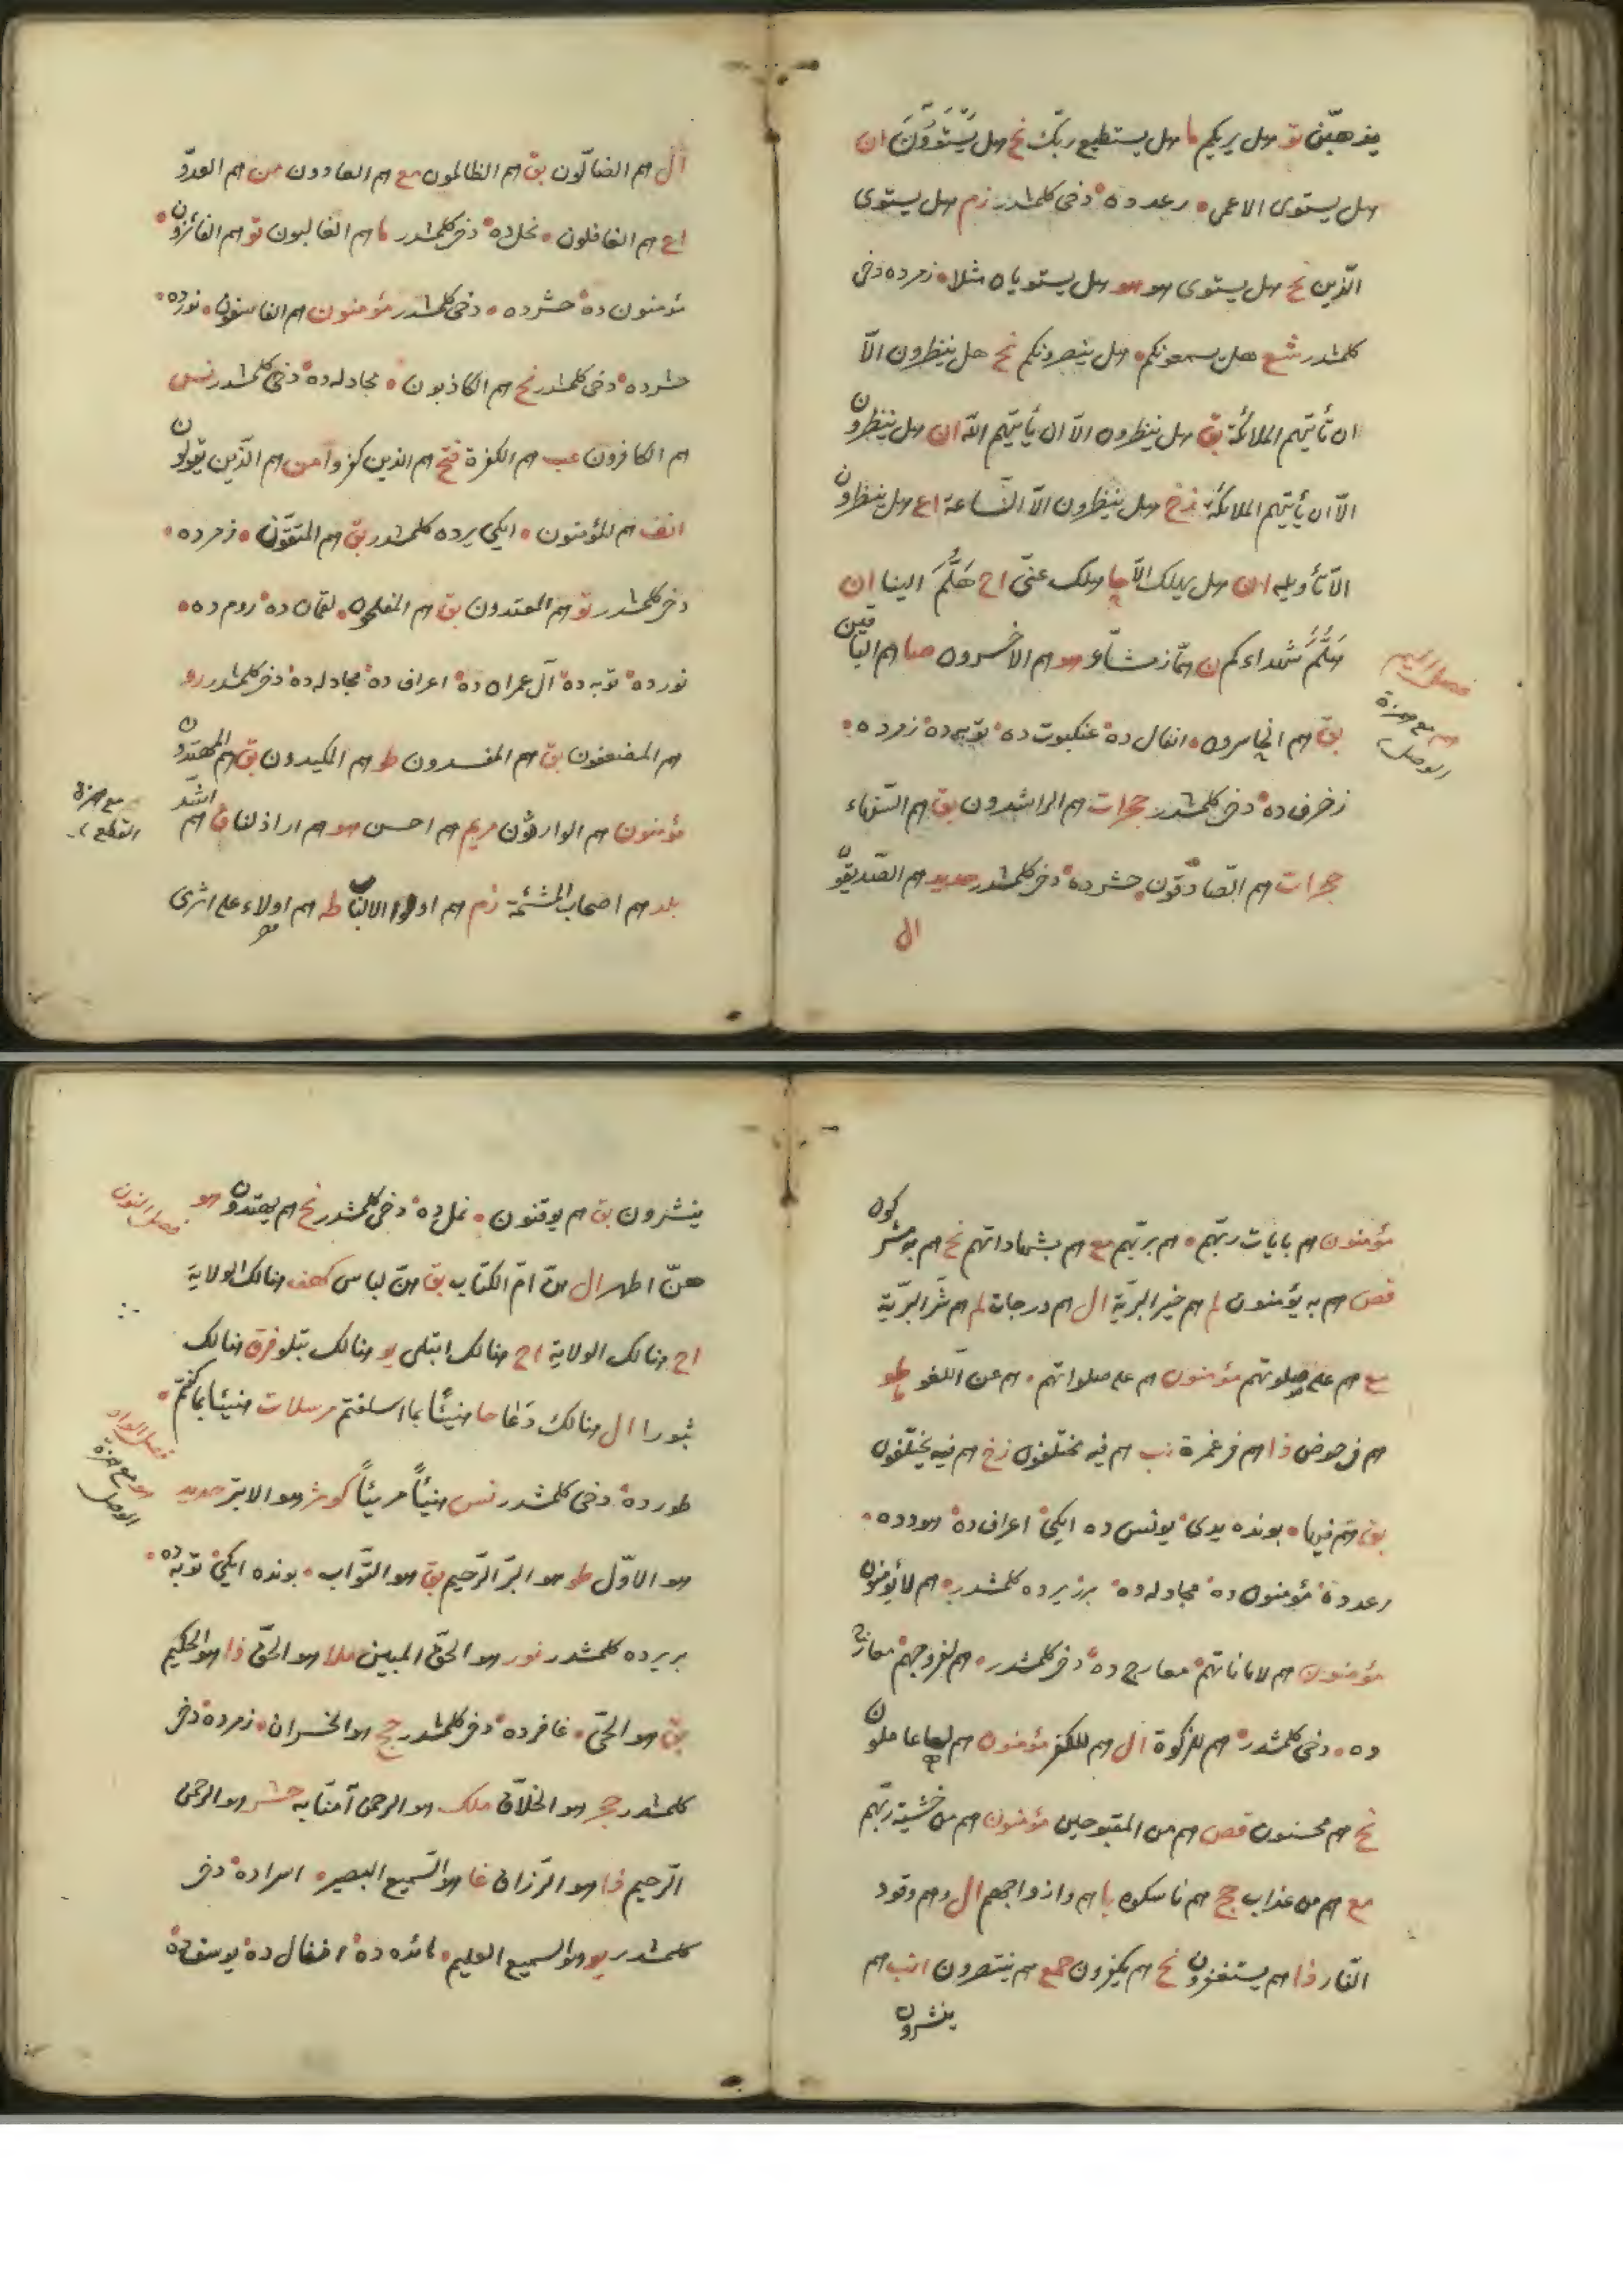 يذهبن تو هل يريكم ما هل يستطيع ربك نح هل يَسْتَوُونَ ان
هل يستوى الاعمى رعد ده دخى كلمشدر زم هل يستوى
الذين نح هل يستوى هو هو هل يستويان مثلا زمرده دخى
كلمشدر شع هل يسمعونكم هل ينصرونكم نح هل ينظرون الّا
ان تأتيهم الملائكة بق هل ينظرون الّا ان يأتيهم الله ان هل ينظرون
الّا ان يأتيهم الملائكة زخ هل ينظرون الّا الساعة اع هل ينظرون
الّا تأويله ان هل يهلك الّا حا هلك عنّى اح هَلُمَّ الينا ان
هَلُمَّ شُهداءكم ن همّاز مشّاء هو هم الاخسرون صا هم الباقين
بق هم الخاسرون انفال ده عنكبوت ده توبه ده زمر ده
زخرف ده دخى كلمشدر حجرات هم الراشدون بق هم السّفهاء
حجرات هم الصّادقون حشر ده دخى كلمشدر حديد هم الصّديقون
ال
فصل الميم
هم مع همزة
الوصل
ال هم الضالّون بق هم الظالمون مع هم العادون من هم العدوّ
اع هم الغافلون نحل ده دخى كلمشدر ما هم الغالبون تو هم الفائزون
مؤمنون ده حشرده دخى كلمشدر مؤمنون هم الفاسقون نورده
حشرده دخى كلمشدر نح هم الكاذبون مجادله ده دخى كلمشدر نس
هم الكافرون عب هم الكفرة فتح هم الذين كفروا من هم الّذين يقولون
انف هم المؤمنون ايكى يرده كلمشدر بق هم المتقون زمرده
دخى كلمشدر تو هم المعتدون بق هم المفلحون لقمان ده روم ده
نورده توبه ده آل عمران ده اعراف ده مجادله ده دخى كلمشدر رو
هم المضعفون بق هم المفسدون طو هم المكيدون بق هم المهتدون
مؤمنون هم الوارثون مريم هم احسن هو هم اراذلنا ق هم اشد
بلد هم اصحاب المشئمة زم هم اولوا الالباب طه هم اولاء على اثرى
مع همزة
القطع
مؤمنون هم بايات ربّهم هم بربّهم مع هم بشهاداتهم نح هم به مشركون
قص هم به يؤمنون لم هم خير البريّة ال هم درجات لم هم شرّ البريّة
مع هم على صلوتهم مؤمنون هم على صلواتهم هم عن اللغو طو
هم فى خوض ذا هم فى غمرة نب هم فيه مختلفون زخ هم فيه يختلفون
بق هم فيها بونده يدى يونس ده ايكى اعراف ده هودده
رعد ده مؤمنون ده مجادله ده برر يرده كلمشدر هم لا يؤمنون
مؤمنون هم لاماناتهم معارج ده دخى كلمشدر هم لفروجهم معارج
ده دخى كلمشدر هم للزكوة ال هم للكفر مؤمنون هم لها عاملون
نح هم محسنون قص هم من المقبوحين مؤمنون هم من خشية ربّهم
مع هم من عذاب حج هم ناسكوه يا هم وازواجهم ال وهم وقود
النّار ذا هم يستغفرون نح هم يكفرون جمع هم ينتصرون انب هم
ينشرون
ينشرون بق هم يوقنون نمل ده دخى كلمشدر نح هم يهتدون هو
هنّ اطهر ال هنّ امّ الكتاب بق هنّ لباس كهف هنالك الولاية
اح هنالك الولاية اح هنالك ابتلى يو هنالك تبلو فرق هنالك
ثبورا ال هنالك دَعَا حا هنيئًا بما اسلفتم مرسلات هنيئًا بما كنتم
طور ده دخى كلمشدر نس هنيئاً مريئاً كوثر هو الابتر حديد
هو الاوّل طو هو البرّ الرّحيم بق هو التّواب بونده ايكى توبه ده
بر يرده كلمشدر نور هو الحقّ المبين ملا هو الحقّ ذا هو الحكيم
بق هو الحىّ غافرده دخى كلمشدر حج هو الخسران زمرده دخى
كلمشدر حجر هو الخلّاق ملك هو الرحمن آمنّا به حشر هو الرحمن
الرّحيم ذا هو الرّزاق غا هو السّميع البصير اسراده دخى
كلمشدر يو هو السميع العليم مائده ده انفال ده يوسف ده
فصل النون
فصل الواو
هو مع همزة
الوصل